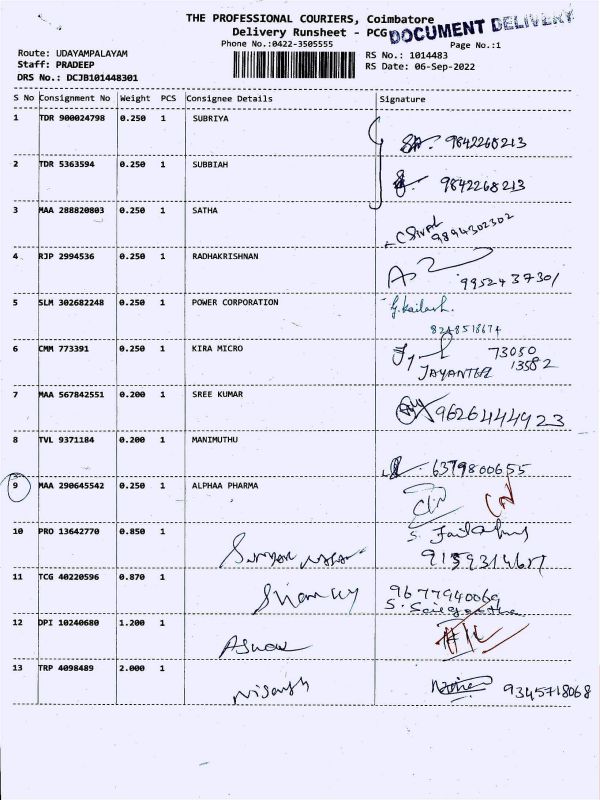 THE PROFESSIONAL COURIERS, Coimbatore
Delivery Runsheet - PCG
DOCUMENT DELIVERY
Phone No.:0422-3505555
Page No.:1
Route: UDAYAMPALAYAM
RS No.: 1014483
Staff: PRADEEP
RS Date: 06-Sep-2022
DRS No.: DCJB101448301
S No Consignment No Weight PCS Consignee Details Signature
1 TDR 900024798 0.250 1 SUBRIYA
9842268213
2 TDR 5363594 0.250 1 SUBBIAH
9842268213
3 MAA 288820803 0.250 1 SATHA
9894302302
4 RJP 2994536 0.250 1 RADHAKRISHNAN
9952437301
5 SLM 302682248 0.250 1 POWER CORPORATION
G.Kailash.
8248518674
6 CMM 773391 0.250 1 KIRA MICRO
73050
13582
7 MAA 567842551 0.200 1 SREE KUMAR
9626444923
8 TVL 9371184 0.200 1 MANIMUTHU
6379800655
9 MAA 290645542 0.250 1 ALPHAA PHARMA
10 PRO 13642770 0.850 1
11 TCG 40220596 0.870 1
9677940069
12 DPI 10240680 1.200 1
13 TRP 4098489 2.000 1
9345718068